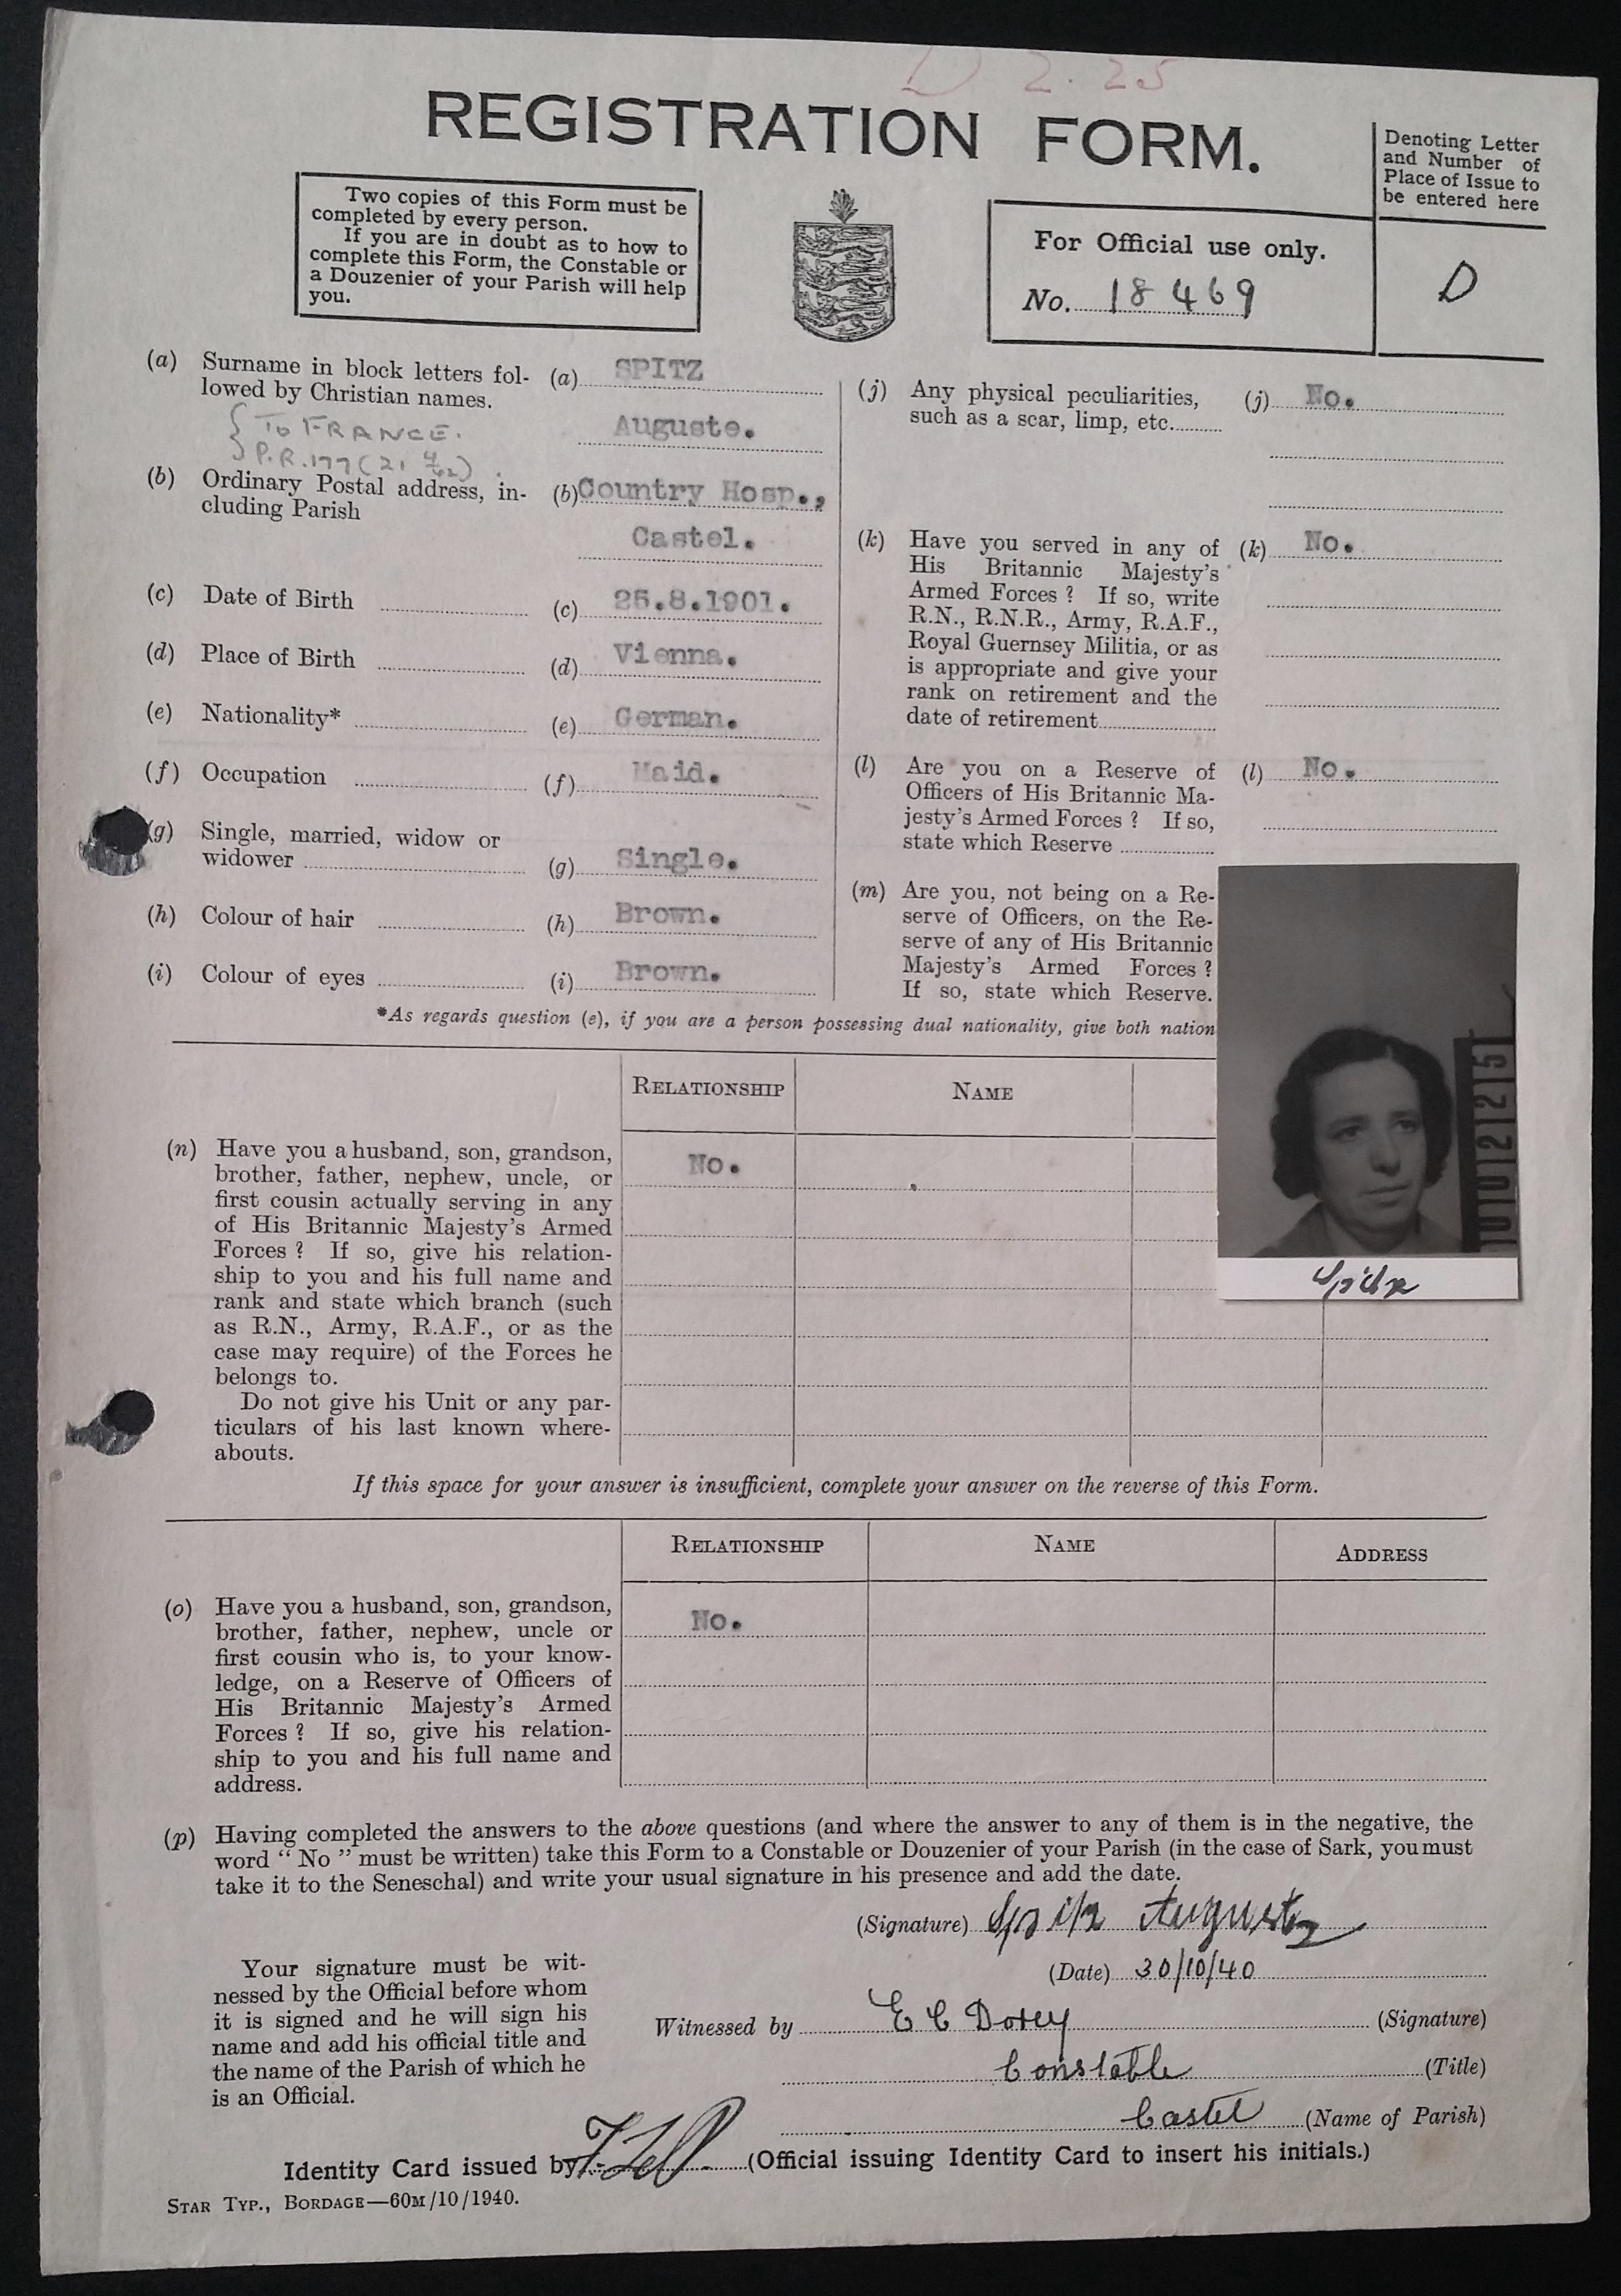 D 2.25
REGISTRATION FORM.
Denoting Letter
and Number of
Place of Issue to
be entered here
D
Two copies of this Form must be
completed by every person.
If you are in doubt as to how to
complete this Form, the Constable or
a Douzenier of your Parish will help
you.
For Official use only.
No. 18469
(a) Surname in block letters fol- (a) SPITZ
lowed by Christian names.
Auguste.
{ To FRANCE.
P.R.177 (21 4/42)
(b) Ordinary Postal address, in- (b) Country Hosp.,
cluding Parish
Castel.
(c) Date of Birth (c) 25.8.1901.
(d) Place of Birth (d) Vienna.
(e) Nationality* (e) German.
(f) Occupation (f) Maid.
(g) Single, married, widow or
widower (g) Single.
(h) Colour of hair (h) Brown.
(i) Colour of eyes (i) Brown.
(j) Any physical peculiarities, (j) No.
such as a scar, limp, etc.
(k) Have you served in any of (k) No.
His Britannic Majesty's
Armed Forces ? If so, write
R.N., R.N.R., Army, R.A.F.,
Royal Guernsey Militia, or as
is appropriate and give your
rank on retirement and the
date of retirement
(l) Are you on a Reserve of (l) No.
Officers of His Britannic Ma-
jesty's Armed Forces ? If so,
state which Reserve
(m) Are you, not being on a Re-
serve of Officers, on the Re-
serve of any of His Britannic
Majesty's Armed Forces ?
If so, state which Reserve.
*As regards question (e), if you are a person possessing dual nationality, give both nation
Spitz
RELATIONSHIP NAME
(n) Have you a husband, son, grandson, No.
brother, father, nephew, uncle, or
first cousin actually serving in any
of His Britannic Majesty's Armed
Forces ? If so, give his relation-
ship to you and his full name and
rank and state which branch (such
as R.N., Army, R.A.F., or as the
case may require) of the Forces he
belongs to.
Do not give his Unit or any par-
ticulars of his last known where-
abouts.
If this space for your answer is insufficient, complete your answer on the reverse of this Form.
RELATIONSHIP NAME ADDRESS
(o) Have you a husband, son, grandson, No.
brother, father, nephew, uncle or
first cousin who is, to your know-
ledge, on a Reserve of Officers of
His Britannic Majesty's Armed
Forces ? If so, give his relation-
ship to you and his full name and
address.
(p) Having completed the answers to the above questions (and where the answer to any of them is in the negative, the
word "No" must be written) take this Form to a Constable or Douzenier of your Parish (in the case of Sark, you must
take it to the Seneschal) and write your usual signature in his presence and add the date.
(Signature) Spitz Auguste
(Date) 30/10/40
Your signature must be wit-
nessed by the Official before whom
it is signed and he will sign his
name and add his official title and
the name of the Parish of which he
is an Official.
Witnessed by E C Dorey (Signature)
Constable (Title)
Castel (Name of Parish)
Identity Card issued by (Official issuing Identity Card to insert his initials.)
STAR TYP., BORDAGE—60M/10/1940.